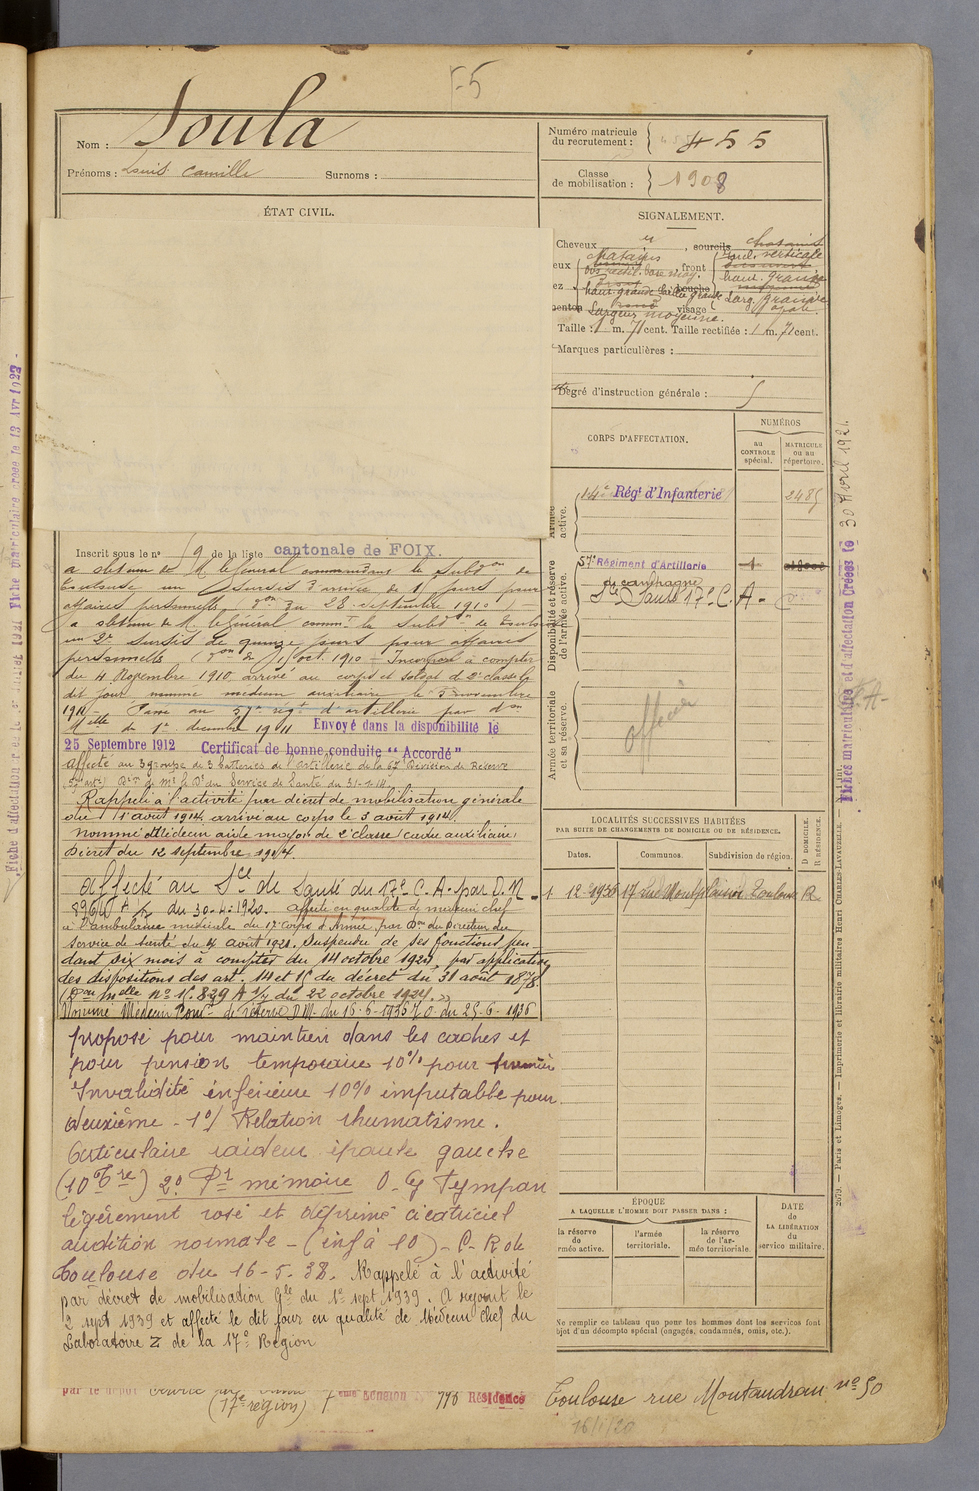 F-5
Nom : Soula
Prénoms : Louis Camille Surnoms :
Numéro matricule du recrutement : 455
Classe de mobilisation : 1908
ÉTAT CIVIL.
SIGNALEMENT.
Cheveux , sourcils chatains
eux chatains front incl. verticale
dos rectil. base moy. haut. grande
haut. grande Saillie grande larg. grande
menton largeur moyenne. visage ovale.
Taille : 1 m. 71 cent. Taille rectifiée : 1 m. 71 cent.
Marques particulières :
Degré d'instruction générale : 5
CORPS D'AFFECTATION.
NUMÉROS
au CONTROLE spécial.
MATRICULE ou au répertoire.
Armée active.
14e Régt d'Infanterie 2485
Disponibilité et réserve de l'armée active.
57e Régiment d'Artillerie
de campagne
Son Santé 17e C. A.
Armée territoriale et sa réserve.
officier
Inscrit sous le no 59 de la liste cantonale de FOIX.
a obtenu de M. le Général commandant la Subdon de
Toulouse un Sursis d'arrivée de 8 jours pour
affaires personnelles don du 28 septembre 1910
a obtenu de M. le Général commt la Subdon de Toulouse
un 2e Sursis de quinze jours pour affaires
personnelles (don du 15 oct. 1910 — Incorporé à compter
du 4 Novembre 1910, arrivé au corps et soldat de 2e classe le
dit jour nommé médecin auxiliaire le 5 novembre
1911 — Passé au 57e régt d'artillerie par don
Melle du 1er décembre 1911 Envoyé dans la disponibilité le
25 Septembre 1912 Certificat de bonne conduite " Accordé "
Affecté au 3e groupe de 3 batteries de l'artillerie de la 67e Division de Réserve
(57e art) Don de Mr le Dr du Service de Santé du 31-1-14.
Rappelé à l'activité par décret de mobilisation générale
du 1er août 1914. arrivé au corps le 3 août 1914.
Nommé Médecin aide major de 2e classe (cadre auxiliaire)
Décret du 12 septembre 1914.
Affecté au Sce de Santé du 17e C. A. par D. M
8964 du 30-4-1920. affecté en qualité de médecin chef
à l'ambulance médicale du 17e Corps d'Armée, par Don du Directeur du
Service de Santé du 4 août 1921. Suspendu de ses fonctions pen-
dant six mois à compter du 14 octobre 1924, par application
des dispositions des art. 14 et 15 du décret du 31 août 1878.
(Don Melle no 15.829 A 1/7 du 22 octobre 1924.)
Nommé Médecin Comt de réserve D.M. du 16-6-1936 J.O. du 25-6-1936
proposé pour maintien dans les cadres et
pour pension temporaire 10% pour première
Invalidité inférieure 10% imputable pour
deuxième - 1o/ Relation rhumatisme.
articulaire raideur épaule gauche
(10% re) 2o Pr mémoire O. G Tympan
légèrement rosé et déprimé cicatriciel
audition normale - (inf à 10) - C. R de
Toulouse du 16-5-38. Rappelé à l'activité
par décret de mobilisation Gle du 1er sept 1939. A rejoint le
2 sept 1939 et affecté le dit jour en qualité de Médecin chef du
Laboratoire Z de la 17e Région
par le dépôt
(17e région) Résidence
Toulouse rue Montaudran no 50
16/1/20
LOCALITÉS SUCCESSIVES HABITÉES
PAR SUITE DE CHANGEMENTS DE DOMICILE OU DE RÉSIDENCE.
Dates. Communes. Subdivision de région. D. DOMICILE. R. RÉSIDENCE.
1-12-1930 17 rue Monplaisir Toulouse R
ÉPOQUE
A LAQUELLE L'HOMME DOIT PASSER DANS :
la réserve de armée active. l'armée territoriale. la réserve de l'armée territoriale.
DATE de LA LIBÉRATION du service militaire.
Ne remplir ce tableau que pour les hommes dont les services font
objet d'un décompte spécial (engagés, condamnés, omis, etc.).
Fiches matriculaire et d'affectation Créées le 30 Avril 1921.
2079. — Paris et Limoges. — Imprimerie et librairie militaires Henri CHARLES-LAVAUZELLE.
Fiche matriculaire créée le 13 Avr 1923